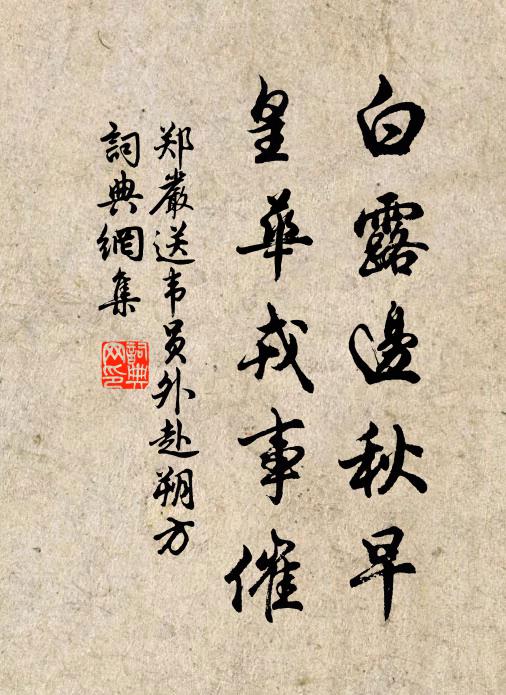 白露邊秋早
皇華戎事催
郑嚴送韦员外赴朔方
詞典網集
詞典网印